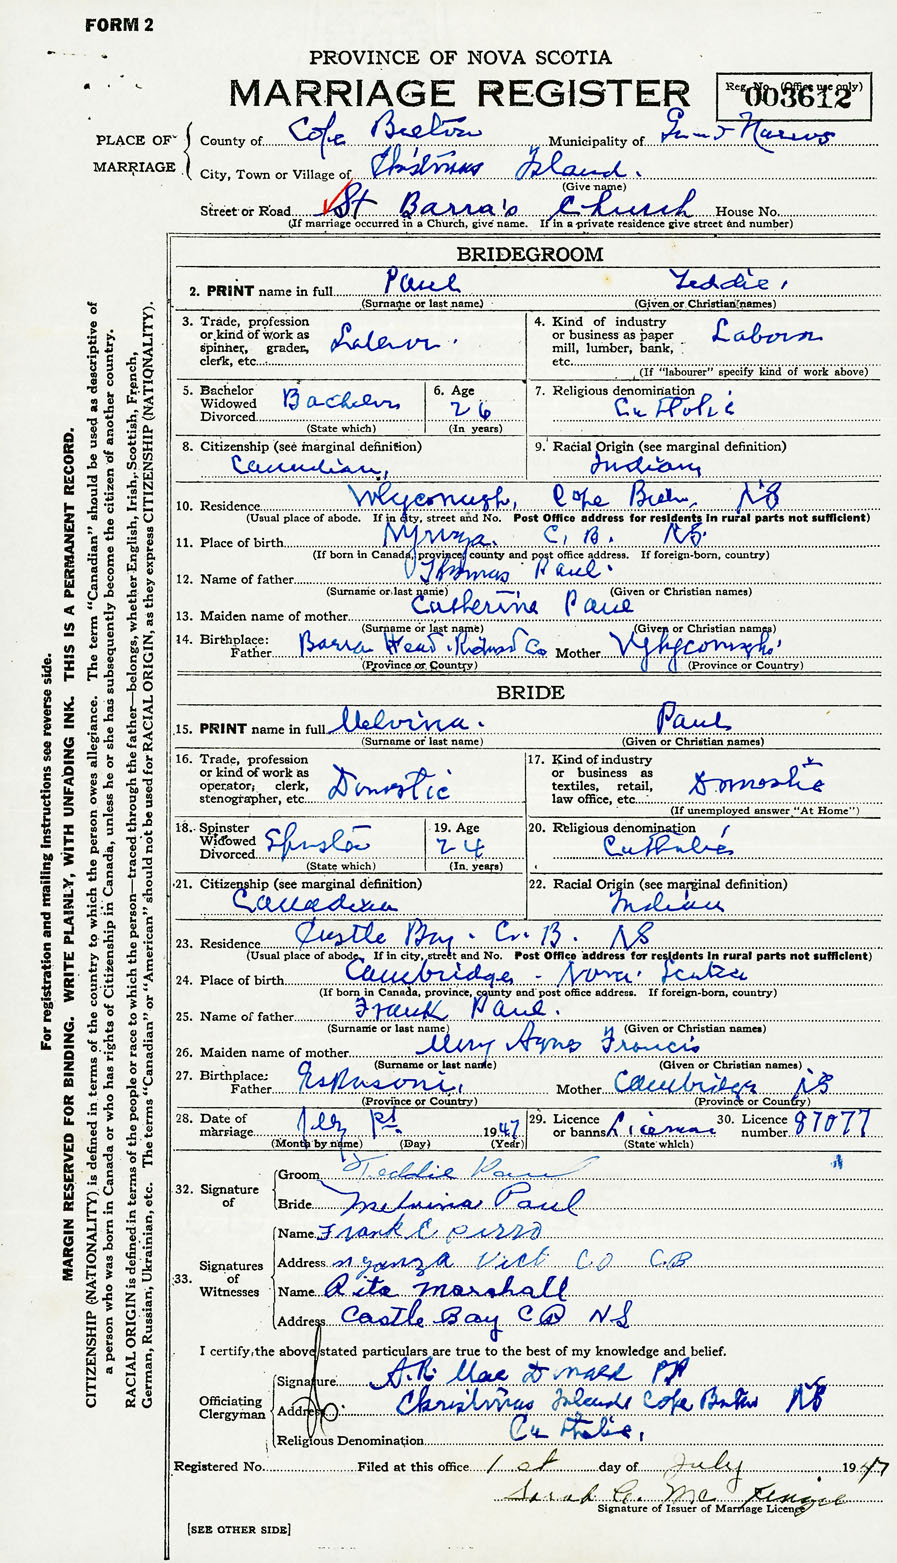 FORM 2
PROVINCE OF NOVA SCOTIA
MARRIAGE REGISTER
Reg. No. (Office use only)
003612
PLACE OF MARRIAGE
County of Cape Breton Municipality of Grand Narrows
City, Town or Village of Christmas Island.
(Give name)
Street or Road St Barra's Church House No.
(If marriage occurred in a Church, give name. If in a private residence give street and number)
BRIDEGROOM
2. PRINT name in full Paul Teddie,
(Surname or last name) (Given or Christian names)
3. Trade, profession or kind of work as spinner, grader, clerk, etc. Laborer.
4. Kind of industry or business as paper mill, lumber, bank, etc. Laborer
(If "labourer" specify kind of work above)
5. Bachelor Widowed Divorced Bachelor
(State which)
6. Age 26
(In years)
7. Religious denomination Catholic
8. Citizenship (see marginal definition)
Canadian,
9. Racial Origin (see marginal definition)
Indian,
10. Residence Whycomagh, Cape Breton NS
(Usual place of abode. If in city, street and No. Post Office address for residents in rural parts not sufficient)
11. Place of birth Nyanza. C. B. NS.
(If born in Canada, province, county and post office address. If foreign-born, country)
12. Name of father Thomas Paul.
(Surname or last name) (Given or Christian names)
13. Maiden name of mother Catherine Paul
(Surname or last name) (Given or Christian names)
14. Birthplace: Father Barra Head. Richmond Co Mother
(Province or Country) (Province or Country)
BRIDE
15. PRINT name in full Melvina. Paul
(Surname or last name) (Given or Christian names)
16. Trade, profession or kind of work as operator; clerk, stenographer, etc. Domestic
17. Kind of industry or business as textiles, retail, law office, etc. Domestic
(If unemployed answer "At Home")
18. Spinster Widowed Divorced Spinster
(State which)
19. Age 24
(In years)
20. Religious denomination Catholic
21. Citizenship (see marginal definition)
Canadian
22. Racial Origin (see marginal definition)
Indian
23. Residence Castle Bay. C. B. NS
(Usual place of abode. If in city, street and No. Post Office address for residents in rural parts not sufficient)
24. Place of birth Cambridge - Nova Scotia
(If born in Canada, province, county and post office address. If foreign-born, country)
25. Name of father Frank Paul.
(Surname or last name) (Given or Christian names)
26. Maiden name of mother Mary Agnes Francis
(Surname or last name) (Given or Christian names)
27. Birthplace: Father Eskasoni, Mother Cambridge NS
(Province or Country) (Province or Country)
28. Date of marriage July 1st 1947
(Month by name) (Day) (Year)
29. Licence or banns License
(State which)
30. Licence number 87077
32. Signature of
Groom Teddie Paul
Bride Melvina Paul
33. Signatures of Witnesses
Name Frank E
Address nyanza Vict CO CB
Name Rita Marshall
Address Castle Bay C B NS
I certify the above stated particulars are true to the best of my knowledge and belief.
Officiating Clergyman
Signature A. R. Mac Donald PP
Address Christmas Island Cape Breton NS
Religious Denomination Catholic,
Registered No. Filed at this office 1st day of July 1947
Sarah
Signature of Issuer of Marriage Licence
[SEE OTHER SIDE]
For registration and mailing instructions see reverse side.
MARGIN RESERVED FOR BINDING. WRITE PLAINLY, WITH UNFADING INK. THIS IS A PERMANENT RECORD.
CITIZENSHIP (NATIONALITY) is defined in terms of the country to which the person owes allegiance. The term "Canadian" should be used as descriptive of
a person who was born in Canada or who has rights of Citizenship in Canada, unless he or she has subsequently become the citizen of another country.
RACIAL ORIGIN is defined in terms of the people or race to which the person—traced through the father—belongs, whether English, Irish, Scottish, French,
German, Russian, Ukrainian, etc. The terms "Canadian" or "American" should not be used for RACIAL ORIGIN, as they express CITIZENSHIP (NATIONALITY).